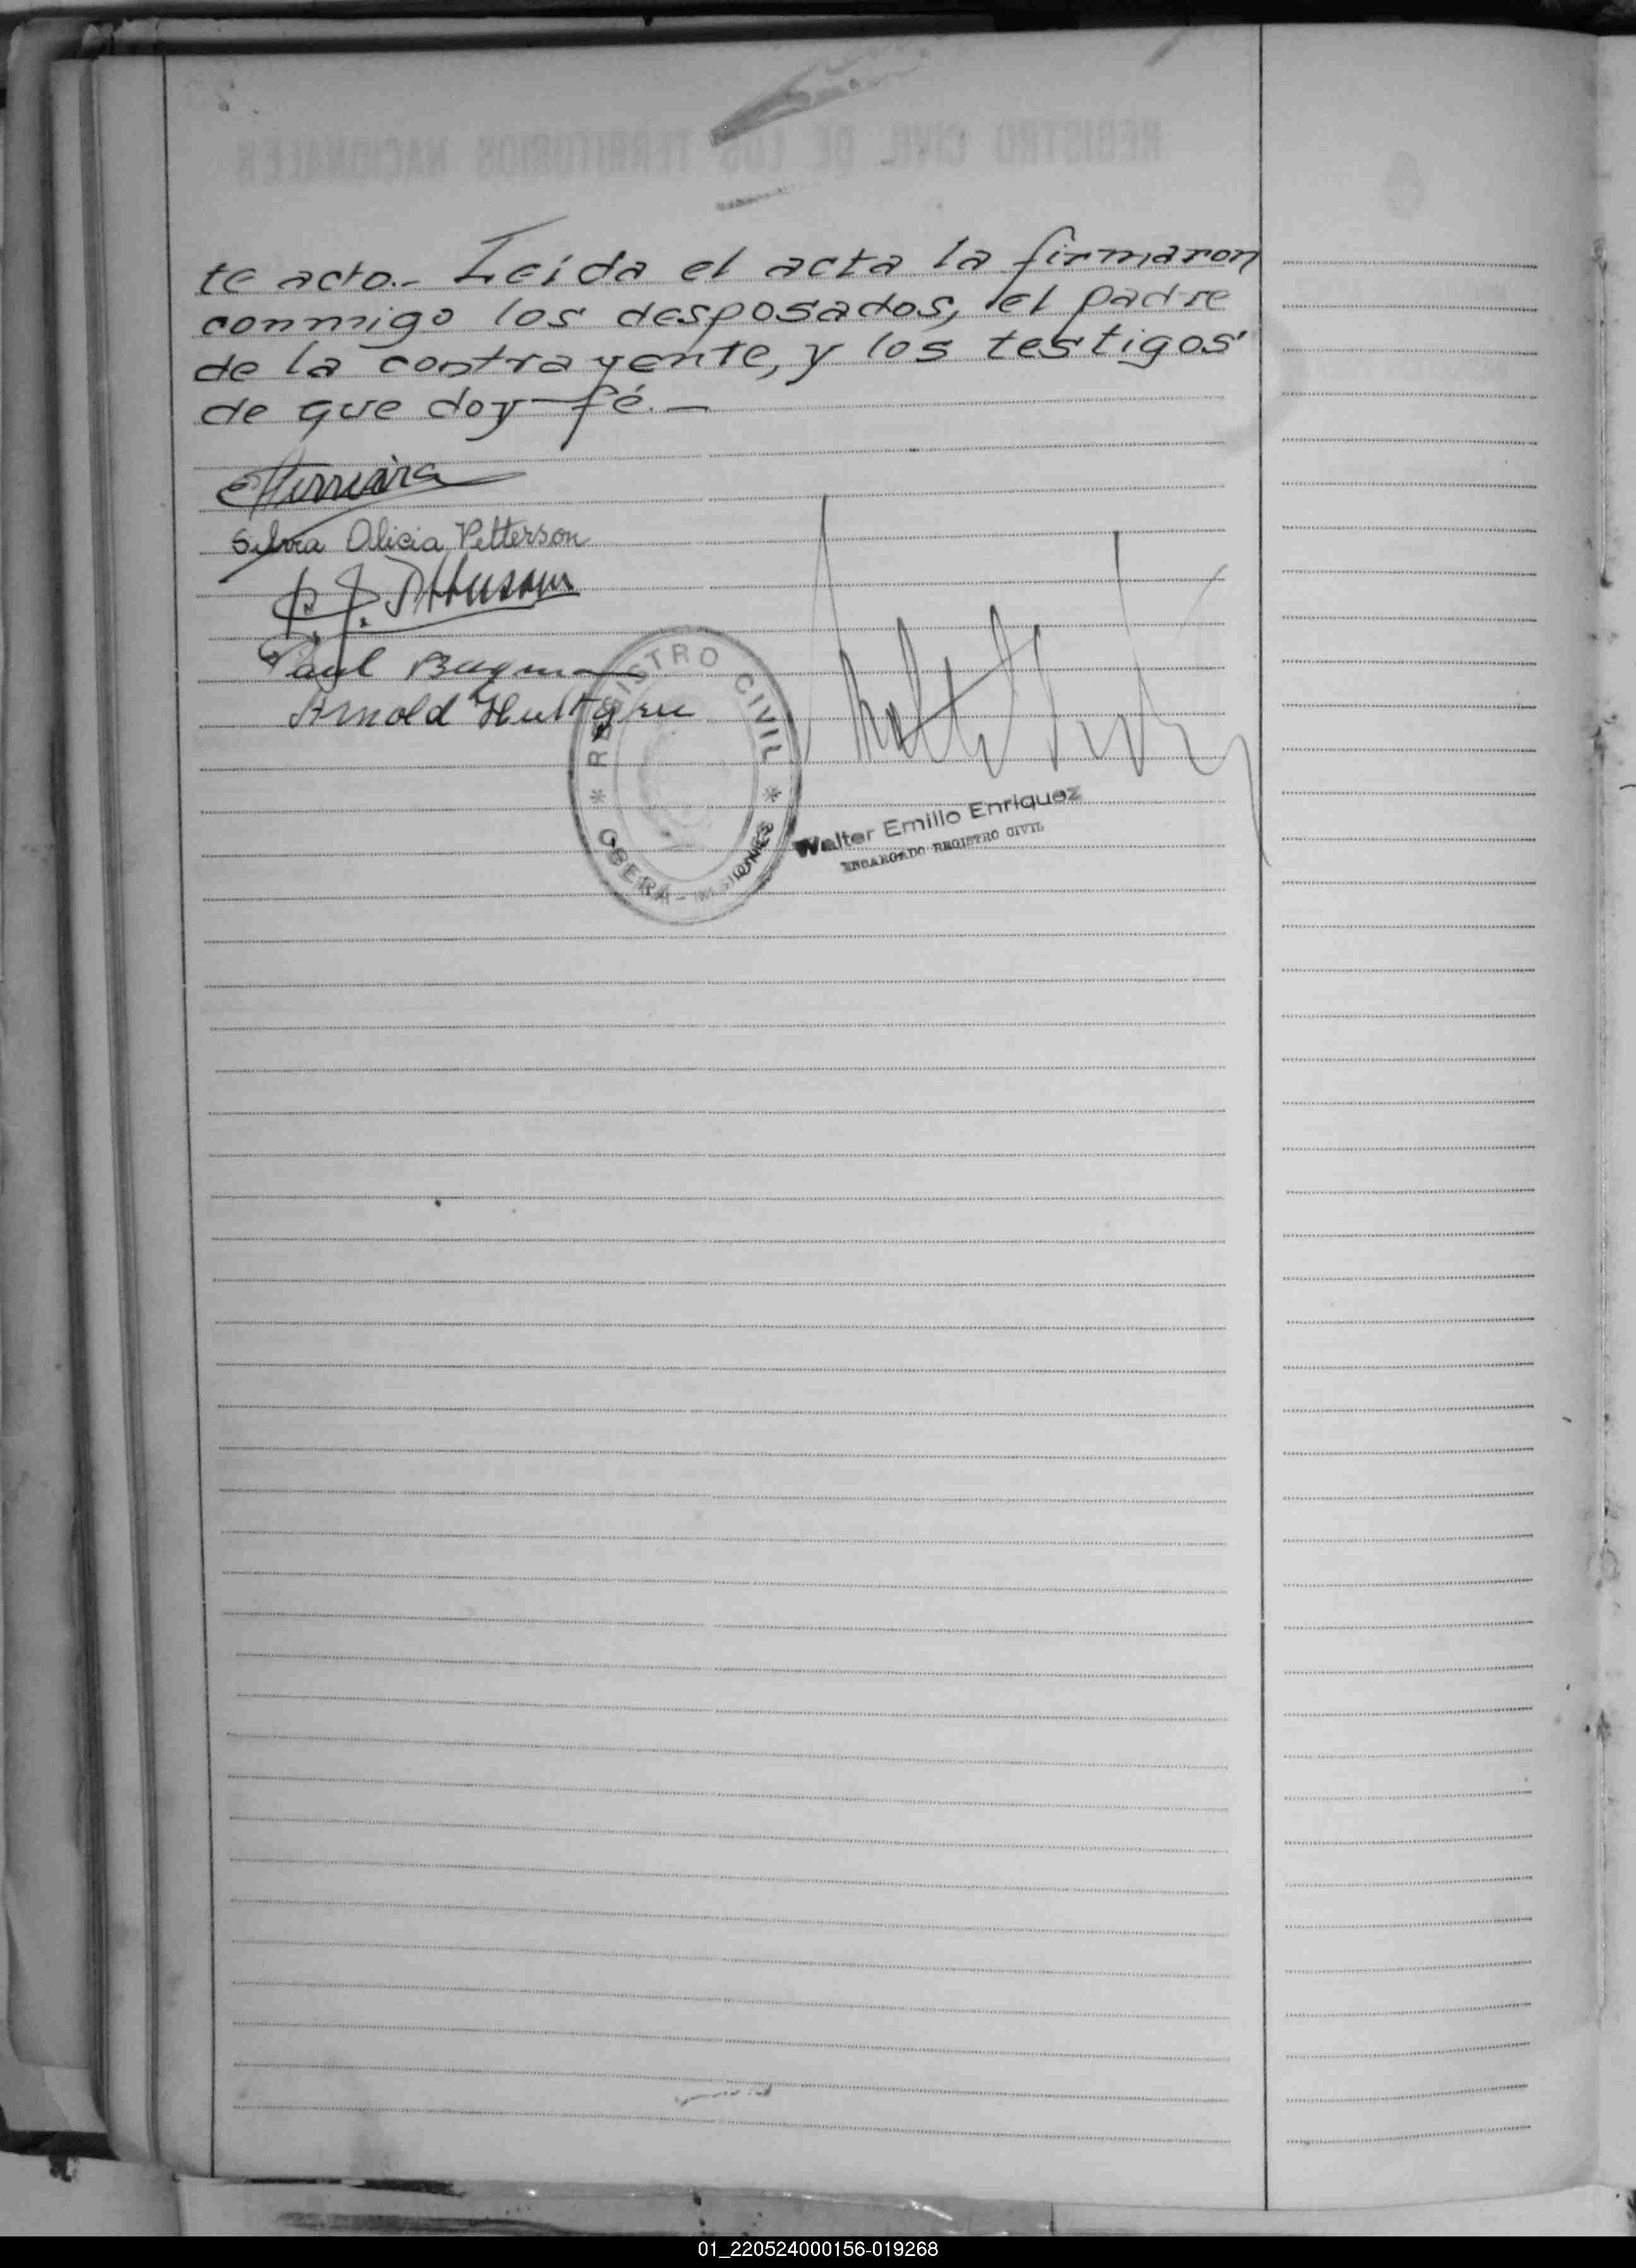 te acto.- Leída el acta la firmaron
conmigo los desposados, el padre
de la contrayente, y los testigos
de que doy fé.-
Silvia Alicia Petterson
Paul
Arnold Hultgren
REGISTRO CIVIL
* OBERÁ - MISIONES *
Walter Emilio Enriquez
ENCARGADO REGISTRO CIVIL
REGISTRO CIVIL DE LOS TERRITORIOS NACIONALES
01_220524000156-019268